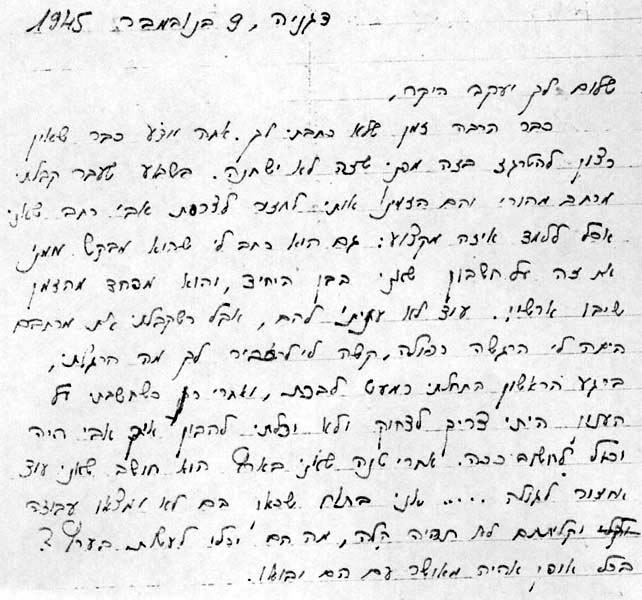 דגניה, 9 בנובמבר 1945
שלום לך יעקב היקר,
כבר הרבה זמן שלא כתבתי לך. אתה יודע כבר שאין
רצון להתרגז בזה מפני שזה לא ישתנה. בשבוע שעבר קבלתי
מכתב מהורי והם הזמינו אותי לחזור לצרפת אבי כתב שאני
אוכל ללמוד איזה מקצוע; גם הוא כתב לי שהוא מבקש ממני
את זה על חשבון שאני בבן היחיד, והוא מפחד מהזמן
עוד לא עניתי להם, אבל כשקבלתי את מכתבם
היתה לי הרגשה כפולה, קשה לי להסביר לך מה הרגתי,
ברגע הראשון התחלתי כמעט לבכות, ואחרי כן כשחשבתי על
הענין הייתי צריך לצחוק ולא יכלתי להבין איך אבי היה
יכול לחשוב ככה. אחרי שנה שאני בארץ הוא חושב שאני עוד
אחזור לגולה ..... אני בטוח שכאן הם לא ימצאו עבודה
וקליטתם לא תהיה קלה, מה הם יוכלו לעשות בערץ?
בכל אופן אהיה מאושר עם הם יבואו.